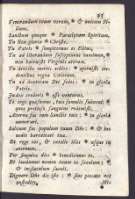 95
Venerandum tuum verum, & unicum Filium.
Sanctum quoque Paraclytum Spiritum.
Tu Rex gloriæ Christe.
Tu Patris sempiternus es Filius.
Tu ad liberandum suscepturus hominem, non horruisti Virginis uterum.
Tu devicto mortis aculeo: aperuisti credentibus regna Cœlorum.
Tu ad dexteram Dei sedes: in gloria Patris.
Judex crederis esse venturus.
Te ergo quæsumus, tuis famulis subveni, quos pretioso sanguine redemisti.
Æterna fac cum sanctis tuis: in gloria numerari.
Salvum fac populum tuum Domine, & benedic hæreditati tuæ.
Et rege eos, & extolle illos usque in æternum.
Per singulos dies benedicimus te.
Et laudamus nomen tuum in sæculum, & in sæculum sæculi.
Dignare Domine die isto: sine peccato nos custodire.